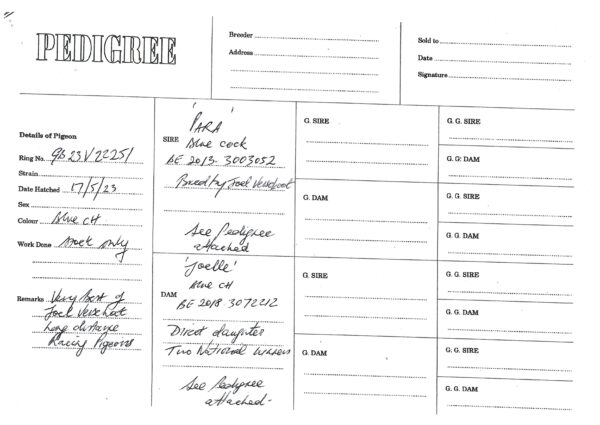 PEDIGREE
Breeder
Address
Sold to
Date
Signature
Details of Pigeon
Ring No. GB 23 V 22251
Strain
Date Hatched 17/5/23
Sex
Colour Blue CH
Work Done Stock only
Remarks Very best of
Joel Verschoot
Long distance
Racing Pigeons
'PARA'
SIRE Blue cock
BE 2013-3003052
Bred by Joel Verschoot
See Pedigree
attached
'Joelle'
Blue CH
DAM
BE 2018 3072212
Direct daughter
Two National winners
See Pedigree
attached-
G. SIRE
G. DAM
G. SIRE
G. DAM
G. G. SIRE
G. G. DAM
G. G. SIRE
G. G. DAM
G. G. SIRE
G. G. DAM
G. G. SIRE
G. G. DAM